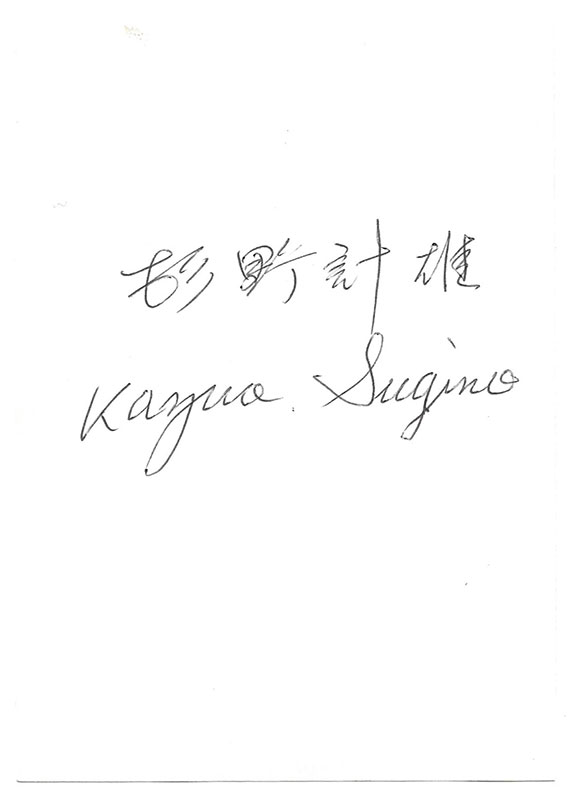 杉野計雄
Kazuo. Sugino